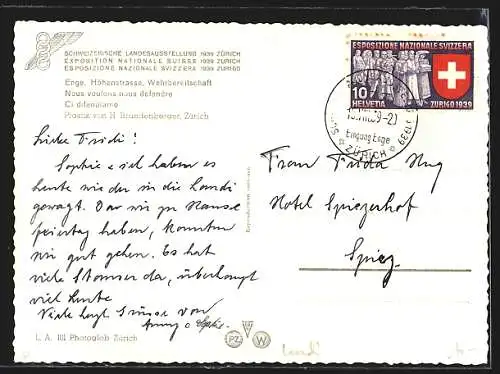 SCHWEIZERISCHE LANDESAUSSTELLUNG 1939 ZÜRICH
EXPOSITION NATIONALE SUISSE 1939 ZURICH
ESPOSIZIONE NAZIONALE SVIZZERA 1939 ZURIGO
Enge, Höhenstrasse, Wehrbereitschaft
Nous voulons nous défendre
Ci difendiamo
Plastik von H Brandenberger, Zürich
ESPOSIZIONE NAZIONALE SVIZZERA
10
HELVETIA
ZURIGO 1939
1939
Eingang Enge
ZÜRICH
Liebe Fridi!
Sophie & ich haben es
heute wieder in die Landi
gewagt. Da wir zu Hause
feiertag haben, konnten
wir gut gehen. Es hat
viele da, überhaupt
viel Leute
Viele herzl. Grüsse von
Anny & Sophie.
Frau Frida Hug
Hotel Spiezerhof
Spiez.
L. A. 101 Photoglob Zürich
PZ
W
Landi